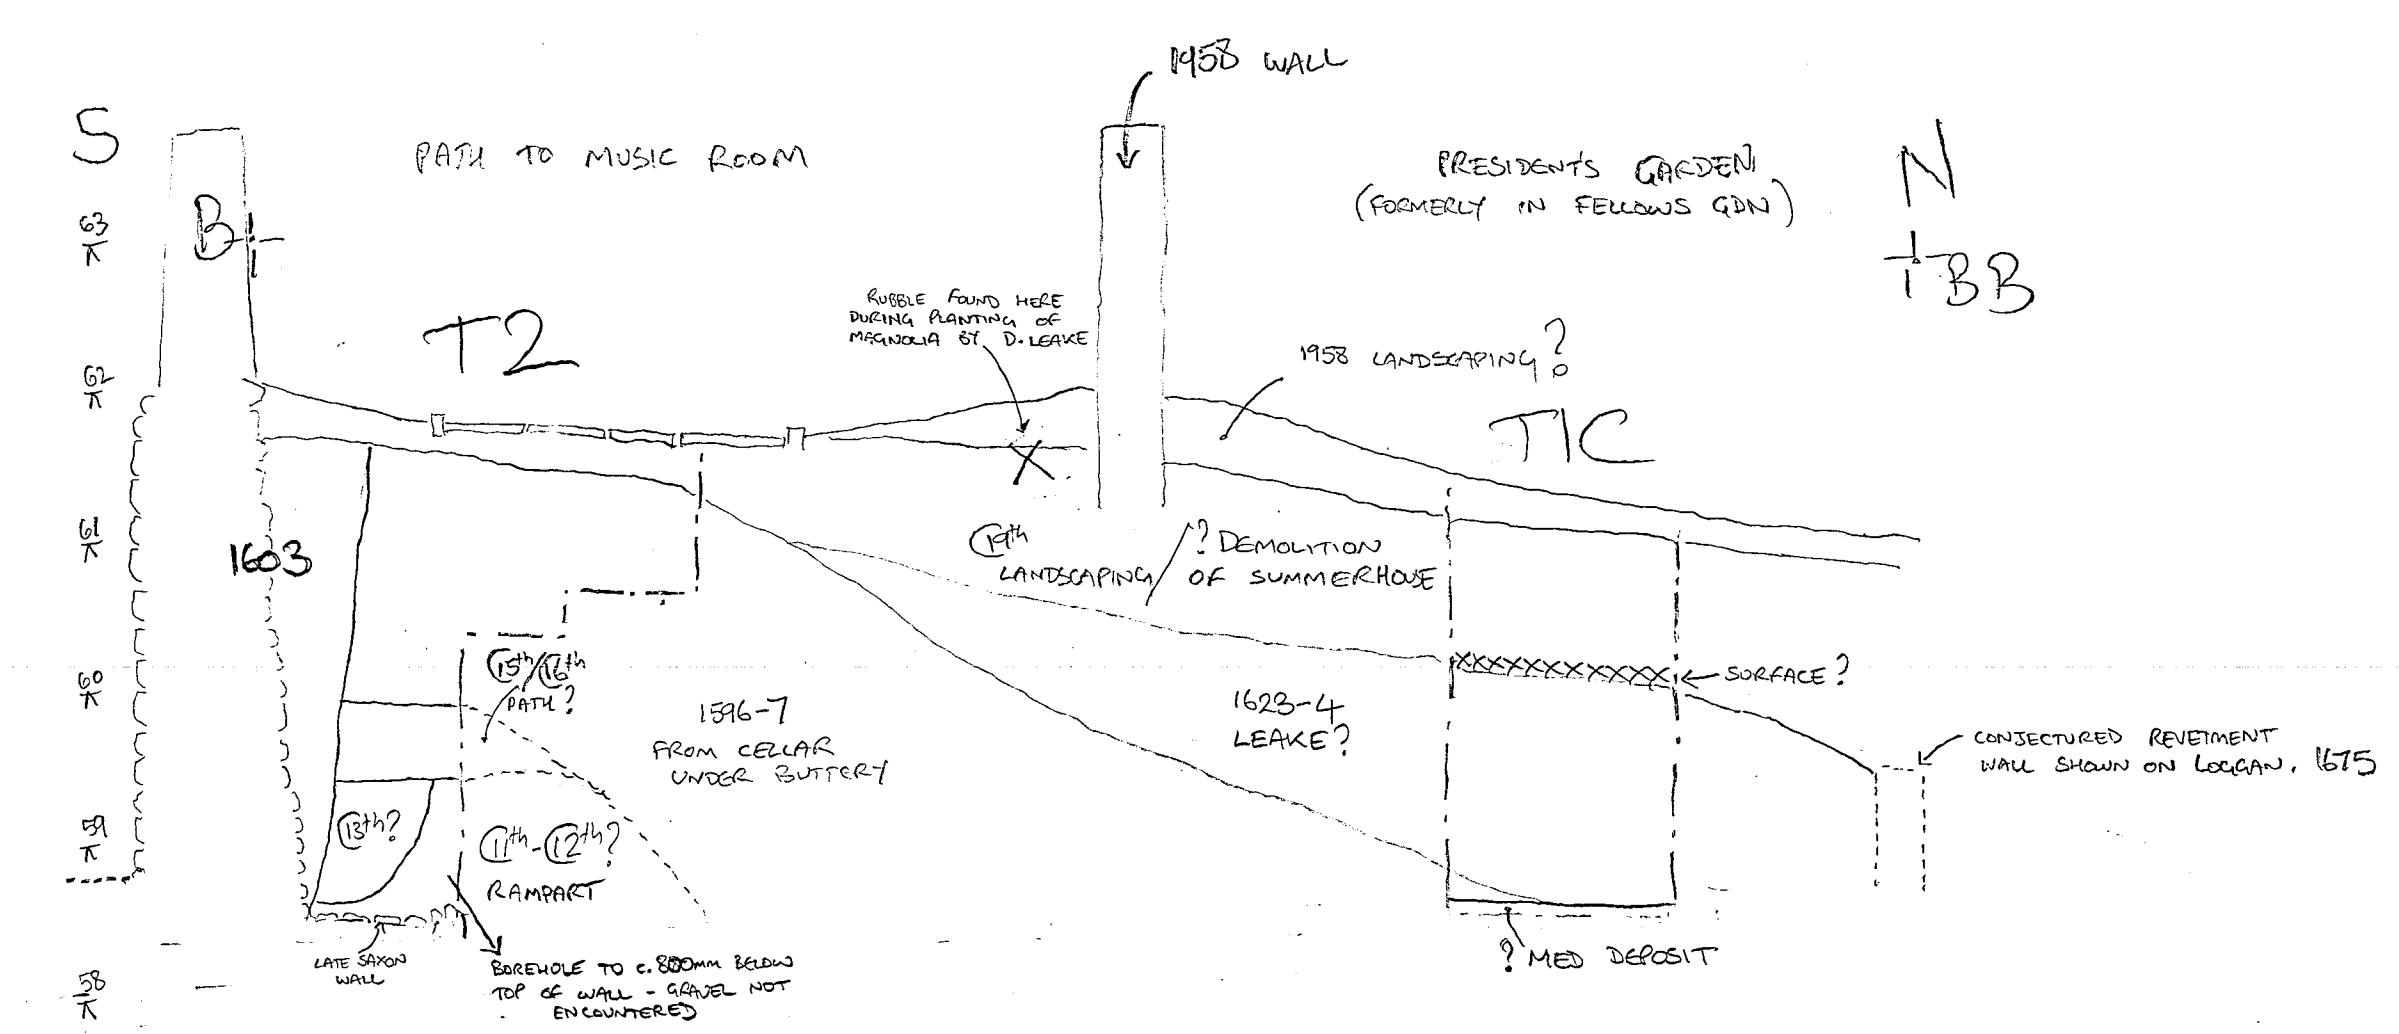 1958 WALL
S
PATH TO MUSIC ROOM
PRESIDENTS GARDEN
(FORMERLY IN FELLOWS GDN)
N
63
B
BB
RUBBLE FOUND HERE
DURING PLANTING OF
MAGNOLIA BY D. LEAKE
T2
1958 LANDSCAPING?
62
T1C
61
1603
C19th
LANDSCAPING/
? DEMOLITION
OF SUMMERHOUSE
60
C15th/C16th
PATH?
1596-7
FROM CELLAR
UNDER BUTTERY
1623-4
LEAKE?
XXXXXXXXXXX
SURFACE?
CONJECTURED REVETMENT
WALL SHOWN ON LOGGAN. 1675
59
C13th?
C11th-C12th?
RAMPART
LATE SAXON
WALL
BOREHOLE TO c.800mm BELOW
TOP OF WALL - GRAVEL NOT
ENCOUNTERED
? MED DEPOSIT
58